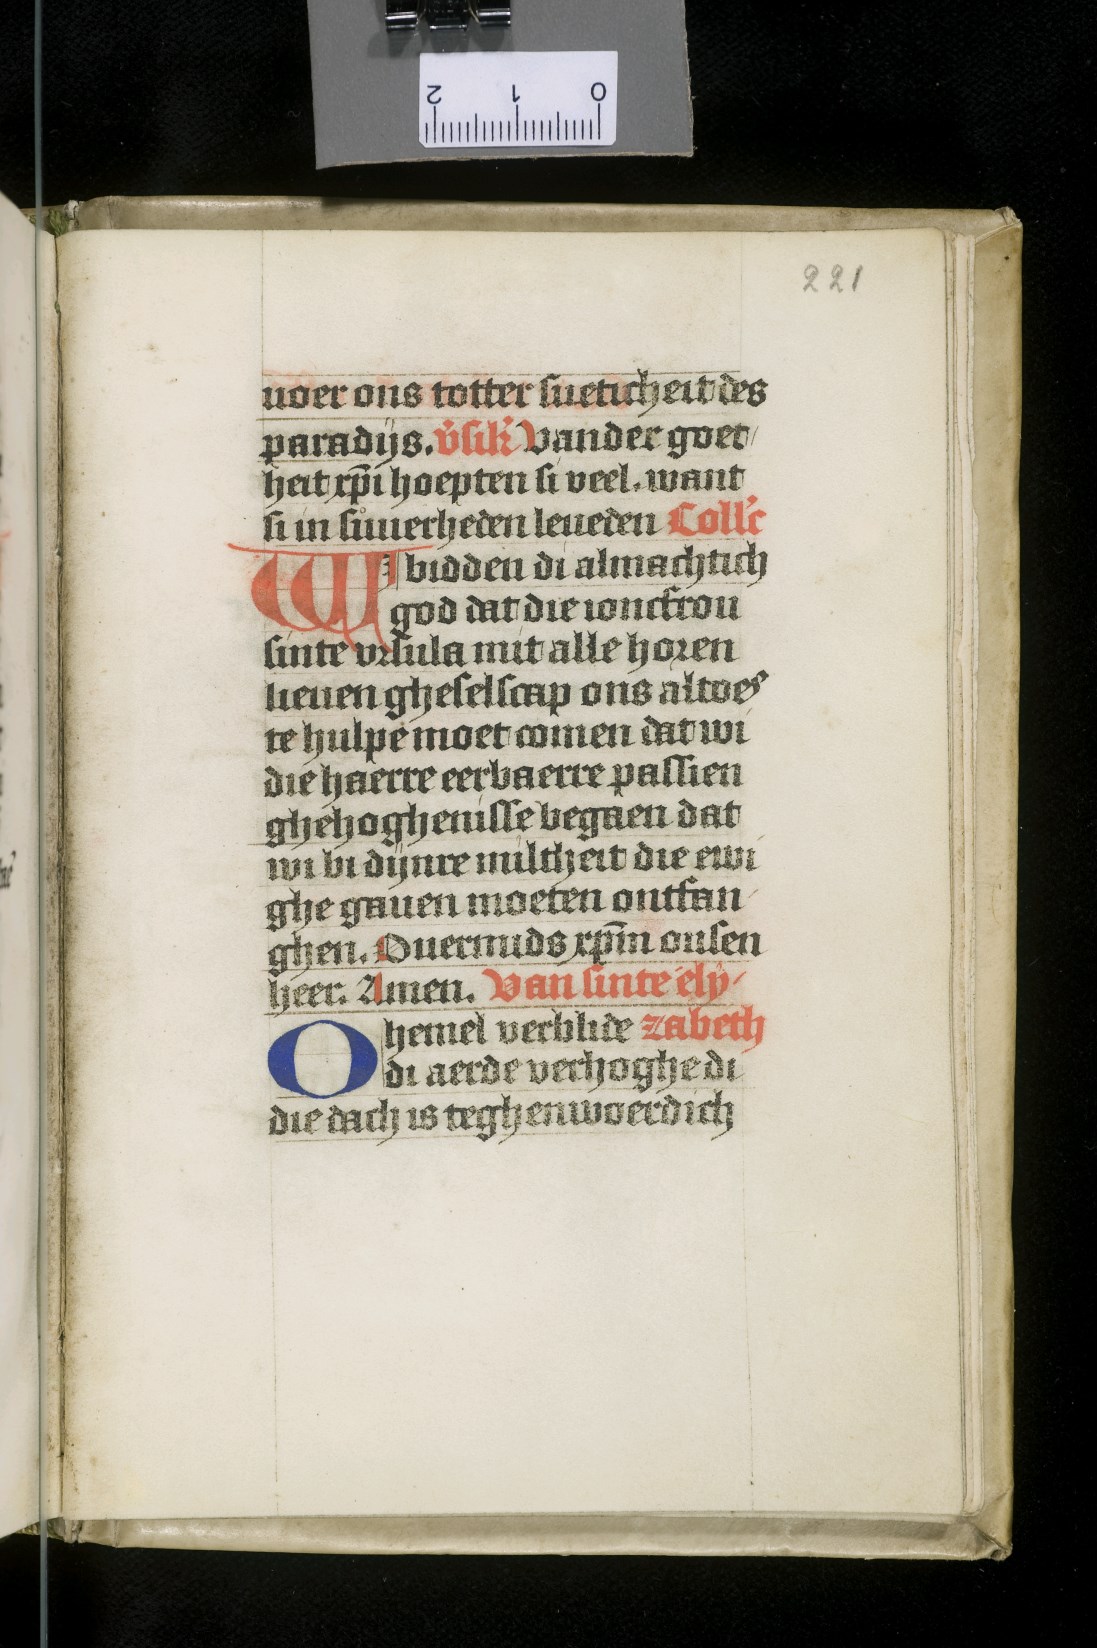 2 1 0
221
uoer ons totter sueticheit des
paradijs. v̾sik̾ Vander goet/
heit xp̄i hoepten si veel. want
si in suͦuerheden leueden Coll̾c
WI bidden di almachtich
god dat die ioncfrou
sinte vrsula mit alle horen
lieuen gheselscap ons altoes
te hulpe moet comen dat wi
die haerre eerbaerre passien
ghehoghenisse begaen dat
wi bi dijnre miltheit die ewi
ghe gauen moeten ontfan/
ghen. Ouermids xp̄m onsen
heer. Amen. Van sinte ely/
O hemel verblide zabeth
di aerde verhoghe di
die dach is teghenwoerdich